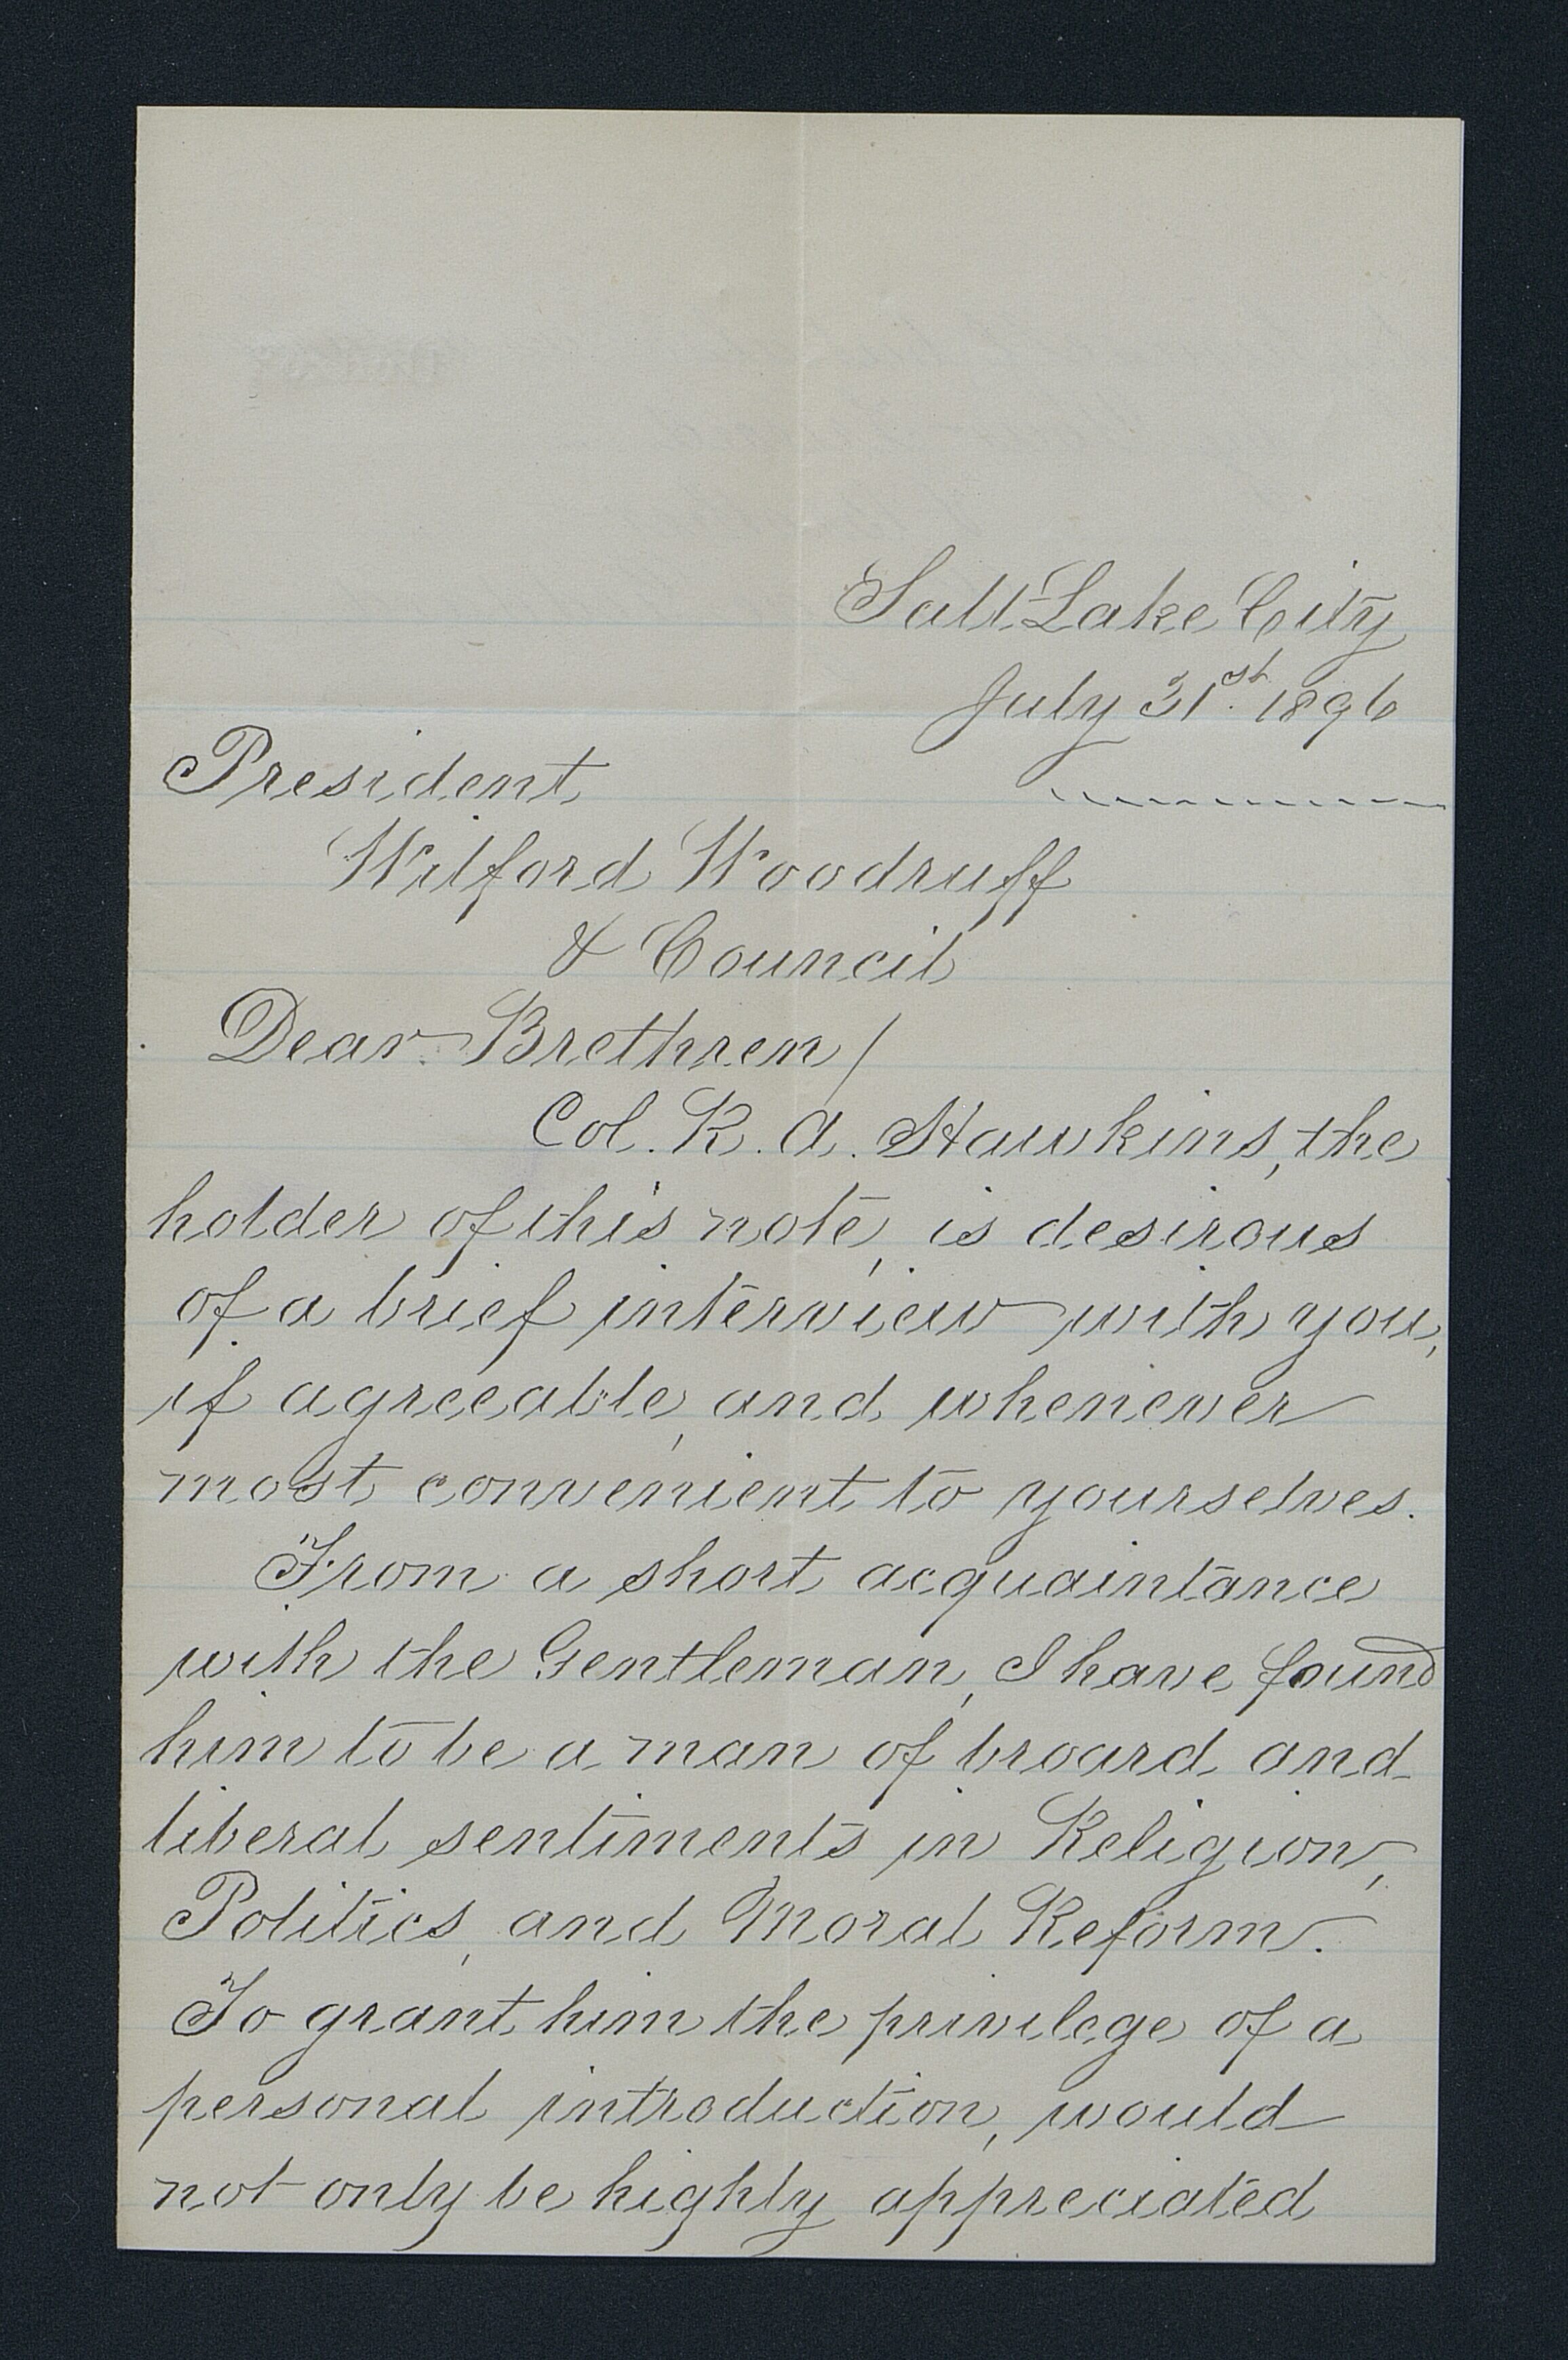 Salt Lake City
July 31st. 1896
President
Wilford Woodruff
& Council
Dear Brethren/
Col. R. A. Hawkins, the
holder of this note, is desirous
of a brief interview with you,
if agreeable, and whenever
most convenient to yourselves.
From a short acquaintance
with the Gentleman, I have found
him to be a man of broard and
liberal sentiments in Religion,
Politics, and Moral Reform.
To grant him the privilege of a
personal introduction, would
not only be highly appreciated